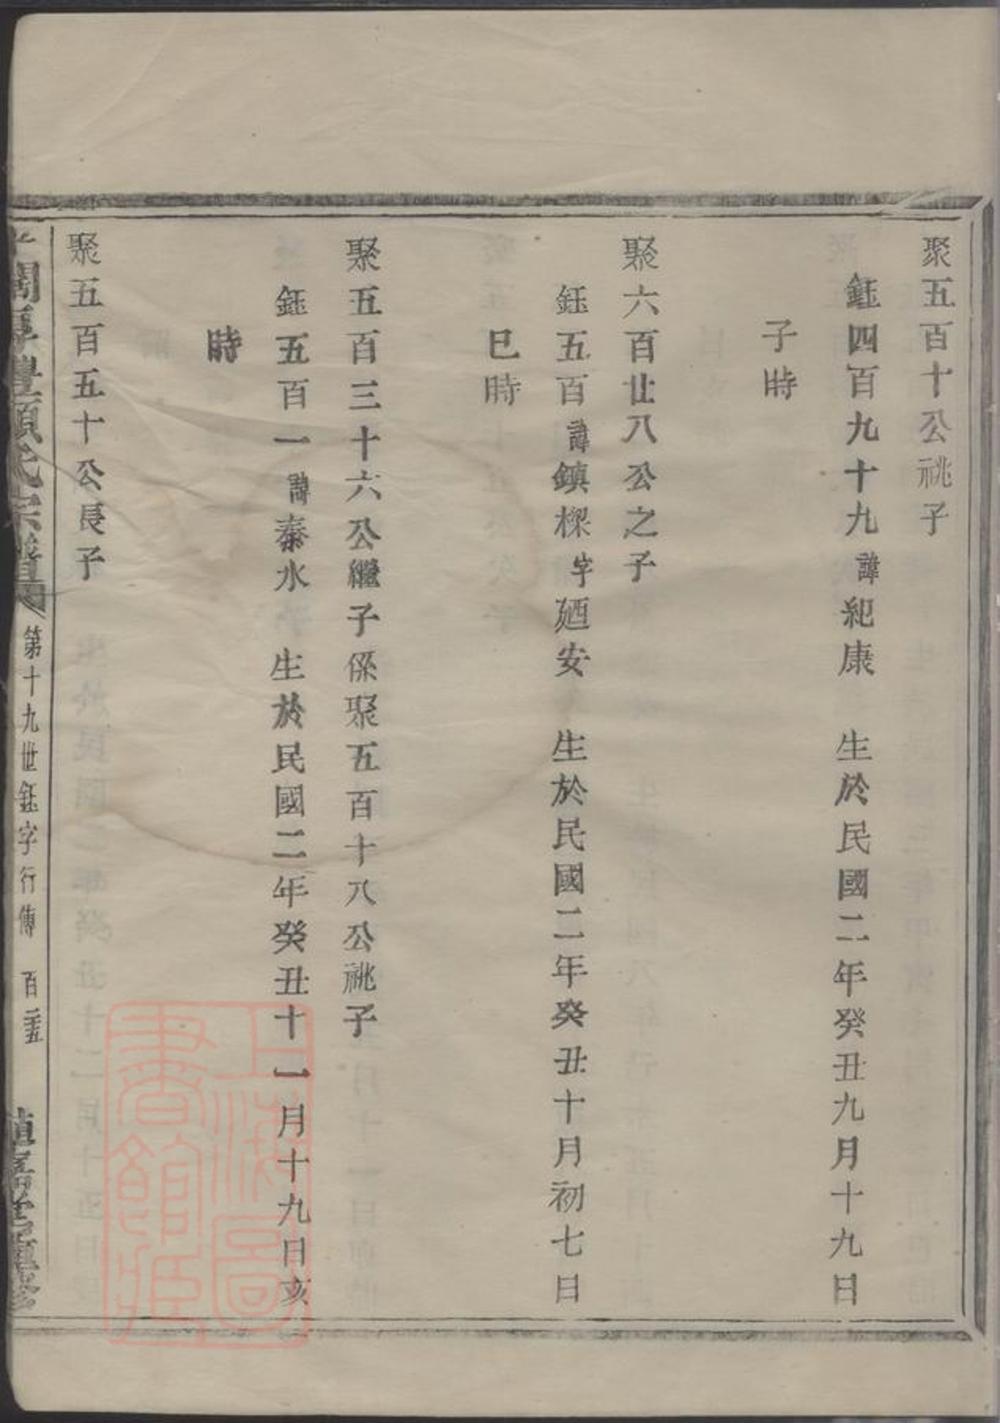 聚五百十公祧子
鈺四百九十九諱紀康 生於民國二年癸丑九月十九日
子時
聚六百廿八公之子
鈺五百諱鎮樑字廼安 生於民國二年癸丑十月初七日
巳時
聚五百三十六公繼子係聚五百十八公祧子
鈺五百一諱泰水 生於民國二年癸丑十一月十九日亥
時
聚五百五十公長子
氏宗譜 第十九世鈺字行傳 百二五 重修
上海圖
書館藏